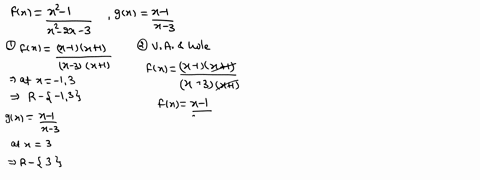 f(x) = x²-1 / x²-2x-3 , g(x) = x-1 / x-3
① f(x) = (x-1)(x+1) / (x-3)(x+1)
⇒ at x = -1, 3
⇒ R - {-1, 3}
g(x) = x-1 / x-3
at x = 3
⇒ R - {3}
② V.A. & hole
f(x) = (x-1)(x+1) / (x-3)(x+1)
f(x) = x-1 /